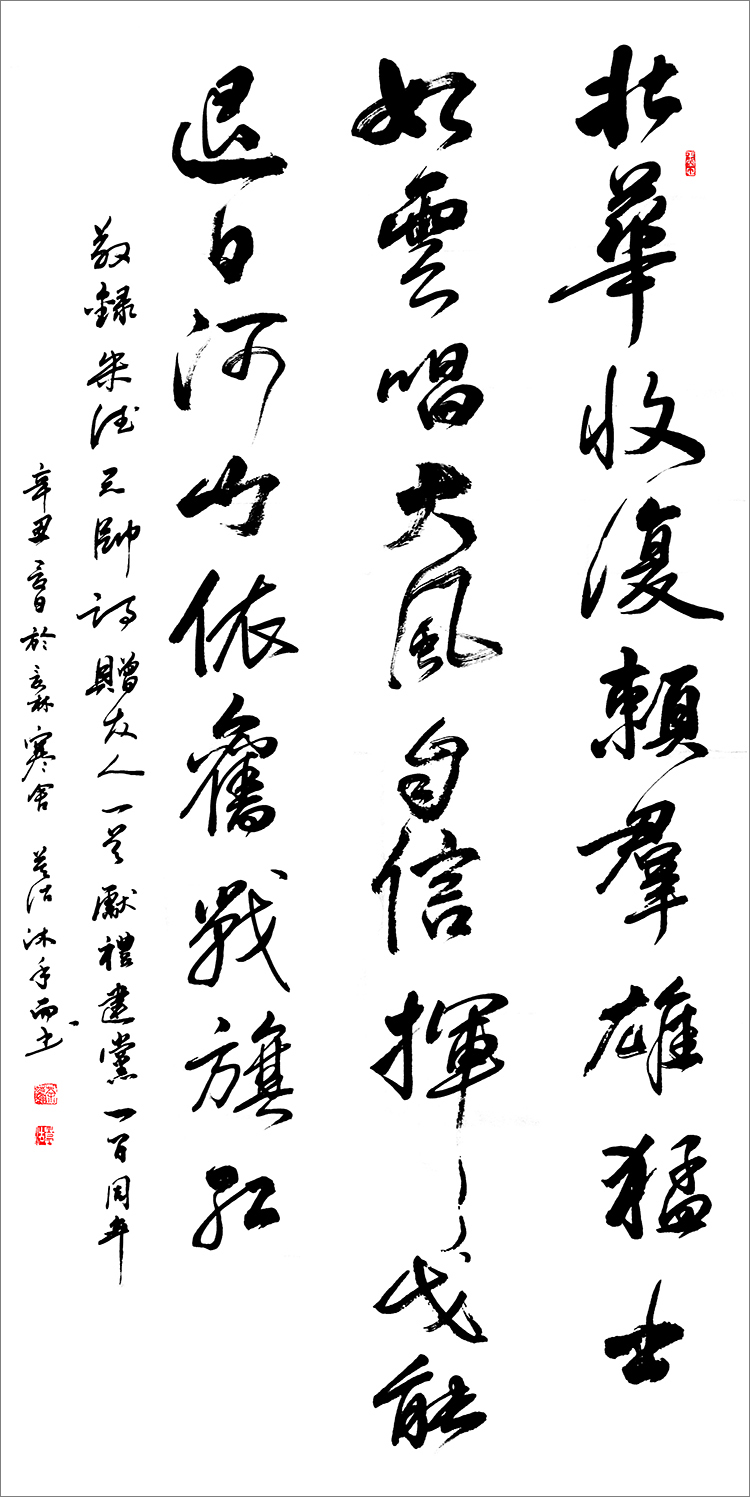 北華收復賴羣雄猛士
如雲唱大風自信揮戈能
退日河山依舊戰旗紅
敬録朱德元帥詩贈友人一首獻禮建黨一百周年
辛丑春日於寒舍沐手而书